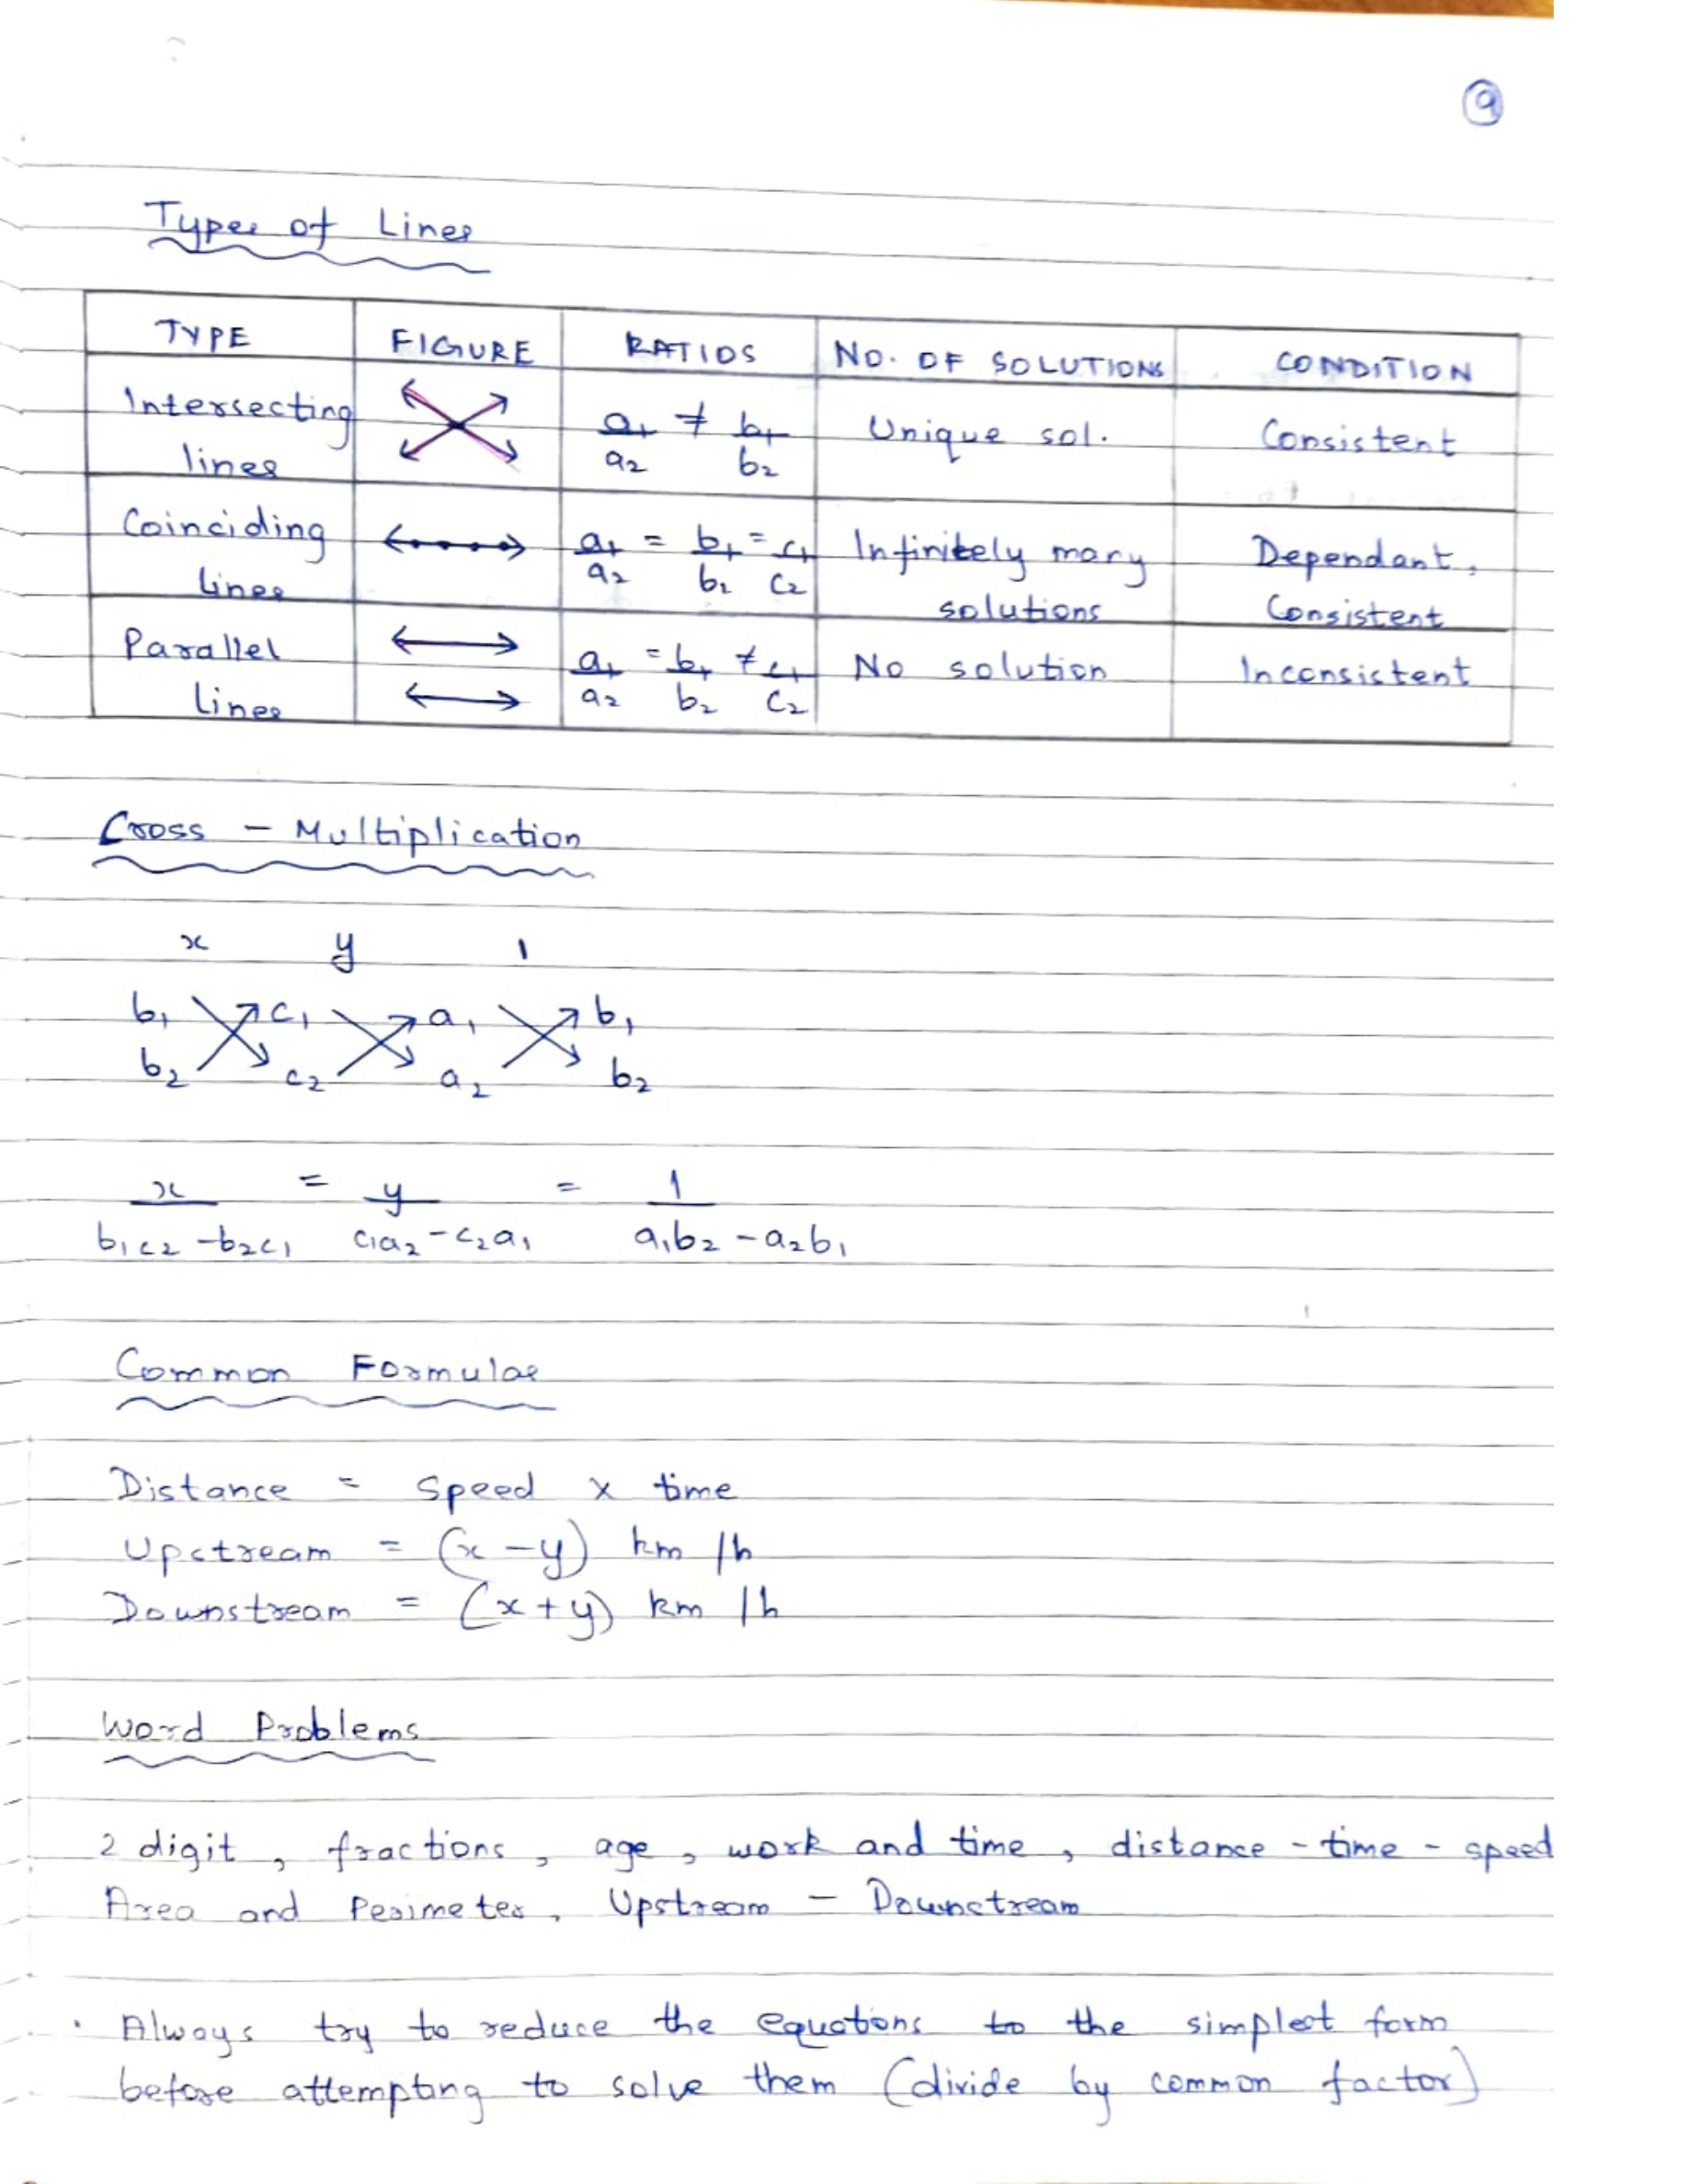 9
Types of Lines
TYPE FIGURE RATIOS NO. OF SOLUTIONS CONDITION
Intersecting lines a1/a2 ≠ b1/b2 Unique sol. Consistent
Coinciding lines a1/a2 = b1/b2 = c1/c2 Infinitely many solutions Dependant, Consistent
Parallel lines a1/a2 = b1/b2 ≠ c1/c2 No solution Inconsistent
Cross - Multiplication
x y 1
b1 c1 a1 b1
b2 c2 a2 b2
x/(b1c2 - b2c1) = y/(c1a2 - c2a1) = 1/(a1b2 - a2b1)
Common Formulae
Distance = speed x time
Upstream = (x - y) km/h
Downstream = (x + y) km/h
Word Problems
2 digit, fractions, age, work and time, distance - time - speed
Area and Perimeter, Upstream - Downstream
· Always try to reduce the equations to the simplest form
before attempting to solve them (divide by common factor)